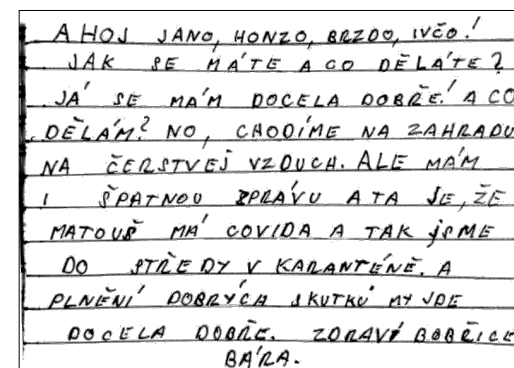 AHOJ JANO, HONZO, BRZDO, IVČO!
JAK SE MÁTE A CO DĚLÁTE?
JÁ SE MÁM DOCELA DOBŘE! A CO
DĚLÁM? NO, CHODÍME NA ZAHRADU
NA ČERSTVEJ VZDUCH. ALE MÁM
I ŠPATNOU ZPRÁVU A TA JE, ŽE
MATOUŠ MÁ COVIDA A TAK jSME
DO STŘEDY V KARANTÉNĚ. A
PLNĚNÍ DOBRÝCH SKUTKŮ MY JDE
DOCELA DOBŘE. ZDRAVÍ BOBŘICE
BÁRA.